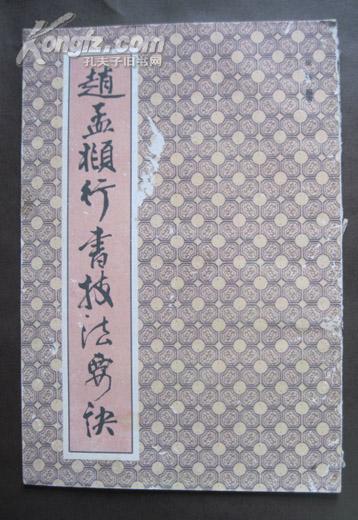 Kongfz.com
孔夫子旧书网
趙孟頫行書技法要訣